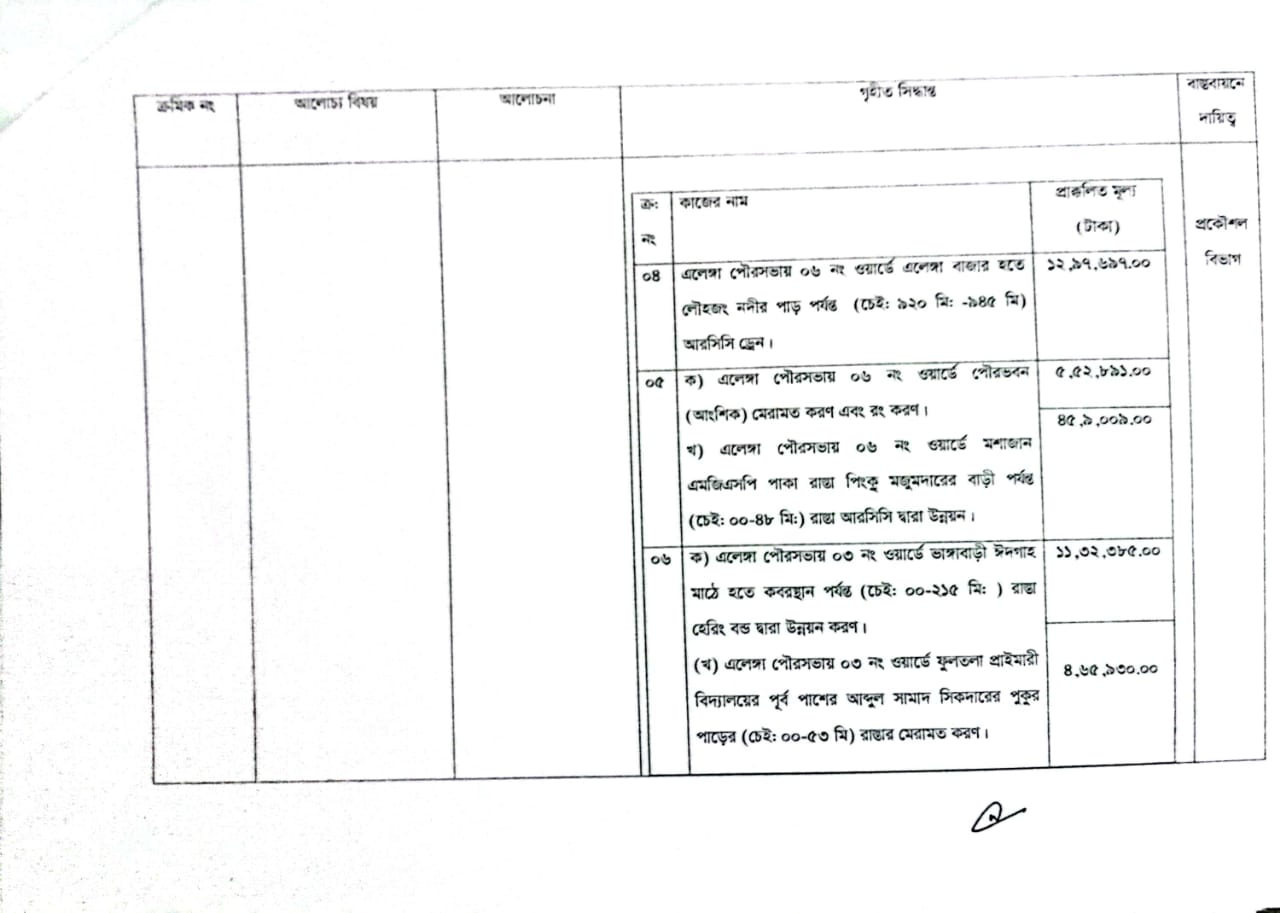 ক্রমিক নং	আলোচ্য বিষয়	আলোচনা	গৃহীত সিদ্ধান্ত	বাস্তবায়নে
দায়িত্ব
ক্র:	কাজের নাম	প্রাক্কলিত মূল্য
নং	(টাকা)	প্রকৌশল
বিভাগ
০৪	এলেঙ্গা পৌরসভায় ০৬ নং ওয়ার্ডে এলেঙ্গা বাজার হতে	১২,৯৭,৬৯৭.০০
লৌহজং নদীর পাড় পর্যন্ত (চেই: ৯২০ মি: -৯৪৫ মি)
আরসিসি ড্রেন।
০৫	ক) এলেঙ্গা পৌরসভায় ০৬ নং ওয়ার্ডে পৌরভবন	৫,৫২,৮৯১.০০
(আংশিক) মেরামত করণ এবং রং করণ।	৪৫,৯,০০৯.০০
খ) এলেঙ্গা পৌরসভায় ০৬ নং ওয়ার্ডে মশাজান
এমজিএসপি পাকা রাস্তা পিংকু মজুমদারের বাড়ী পর্যন্ত
(চেই: ০০-৪৮ মি:) রাস্তা আরসিসি দ্বারা উন্নয়ন।
০৬	ক) এলেঙ্গা পৌরসভায় ০৩ নং ওয়ার্ডে ভাঙ্গাবাড়ী ঈদগাহ	১১,৩২,৩৮৫.০০
মাঠে হতে কবরস্থান পর্যন্ত (চেই: ০০-২১৫ মি: ) রাস্তা
হেরিং বন্ড দ্বারা উন্নয়ন করণ।
(খ) এলেঙ্গা পৌরসভায় ০৩ নং ওয়ার্ডে ফুলতলা প্রাইমারী	৪,৬৫,৯৩০.০০
বিদ্যালয়ের পূর্ব পাশের আব্দুল সামাদ সিকদারের পুকুর
পাড়ের (চেই: ০০-৫৩ মি) রাস্তার মেরামত করণ।